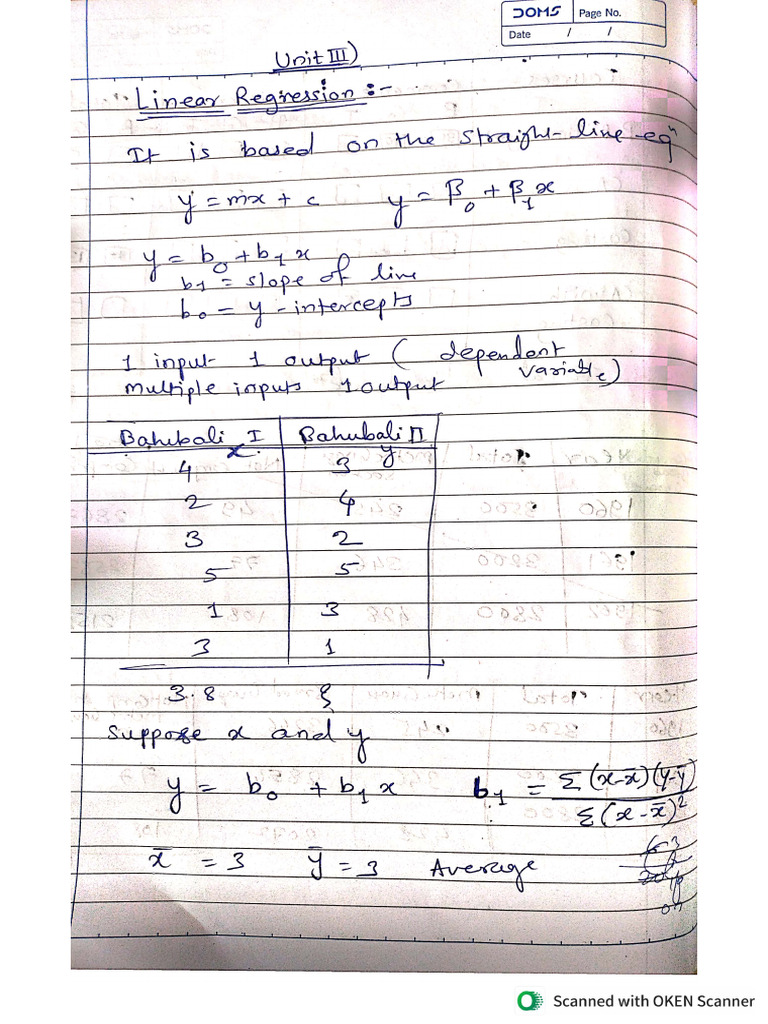 DOMS Page No.
Date / /
Unit III)
Linear Regression :-
It is based on the straight-line eqn
y = mx + c y = β0 + β1x
y = b0 + b1 x
b1 = slope of line
b0 = y - intercepts
1 input 1 output ( dependent
variable)
multiple inputs 1 output
Bahubali I Bahubali II
x y
4 3
2 4
3 2
5 5
1 3
3 1
3.8 ?
suppose x and y
y = b0 + b1 x b1 = Σ(x-x̄)(y-ȳ)
Σ(x-x̄)²
x̄ = 3 ȳ = 3 Average
Scanned with OKEN Scanner